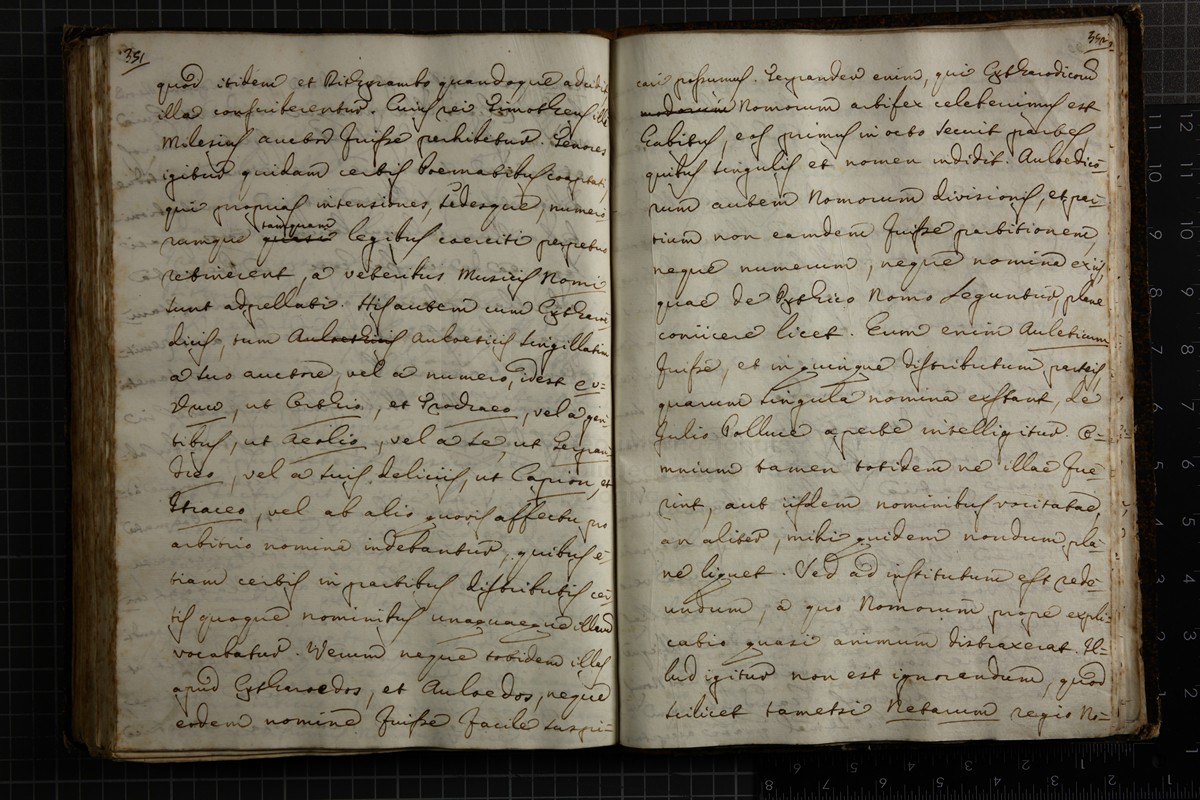 351
quod itidem et Dithyrambo quandoque adcidit
illa conscriberentur. Cuius rei Timotheus ille
Milesius auctor fuisse perhibetur. Tenores
igitur quidam certis Poematibus coaptati,
qui proprias intensiones, sedesque, numero
rumque quasi tamquam legibus coerciti perpetuo
retinerent, a veteribus Musicis Nomi
sunt adpellati. His autem cum Cytharoe
dicis, tum Auloethicis Auloeticis singillatim
a suo auctore, vel a numero, idest
, ut Orthio, et Trochaeo, vel a gen
tibus, ut Aeolio, vel a se, ut Terpan
dreo, vel a suis deliciis, ut Capion, et
, vel ab alio quovis affectu pro
arbitrio nomina indebantur, quibus e-
tiam certis in partibus distributis cer
tis quoque nominibus unaquaeque illarum
vocabatur. Verum neque totidem illas
apud Cytharoedos, et Auloedos, neque
eodem nomine fuisse facile suspi-
352
cari possumus. Terpander enim, qui Cytharoedicorum
modorum Nomorum artifex celeberrimus est
habitus, eos primus in octo secuit partes
quibus singulis et nomen indidit. Auloedico-
rum autem Nomorum divisionis, et par-
tium non eamdem fuisse partitionem,
neque numerum, neque nomina ex iis,
quae de Pythico Nomo leguntur, plane
coniicere licet. Eum enim Auleticum
fuisse, et in quinque distributum parteis,
quarum singula nomina exstant, de
Julio Polluce aperte intelligitur. O-
mnium tamen totidem ne illae fue
rint, aut iisdem nominibus vocitatae,
an aliter, mihi quidem nondum pla-
ne liquet. Sed ad institutum est rede-
undum, a quo Nomorum prope expli-
catio quasi animum distraxerat. Il-
lud igitur non est ignorandum, quod
scilicet tametsi Netarum regio No-